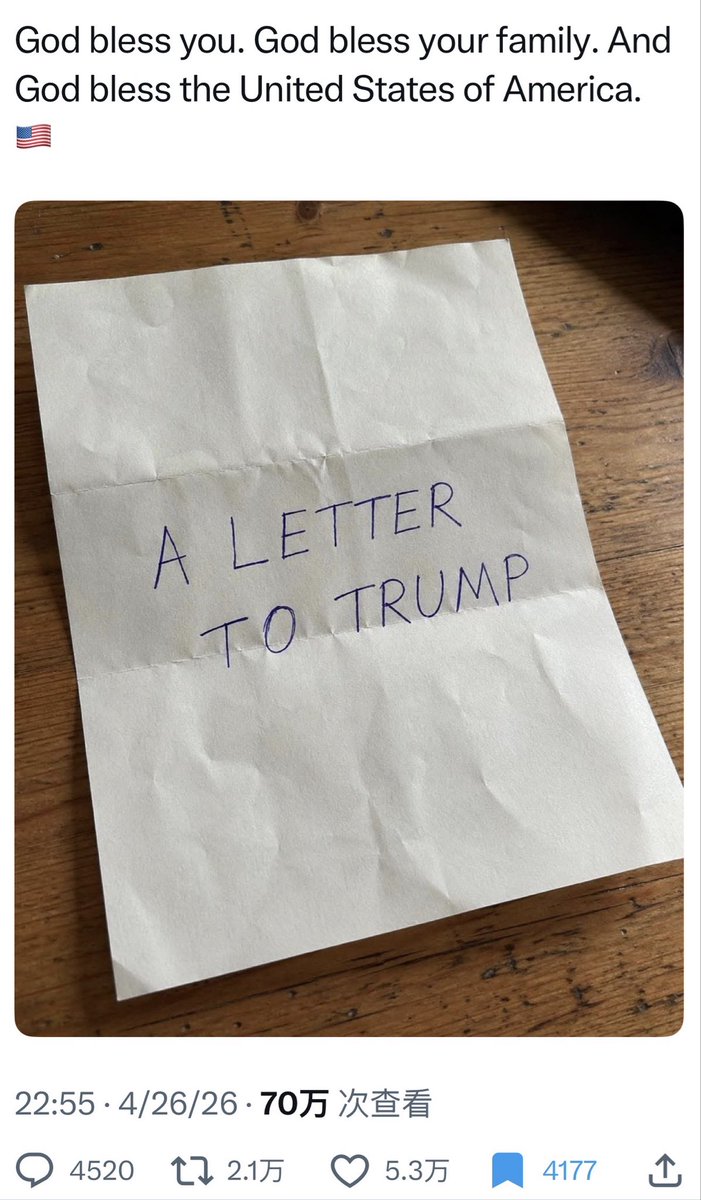 God bless you. God bless your family. And
God bless the United States of America.
🇺🇸
A LETTER
TO TRUMP
22:55 · 4/26/26 · 70万 次查看
4520 2.1万 5.3万 4177